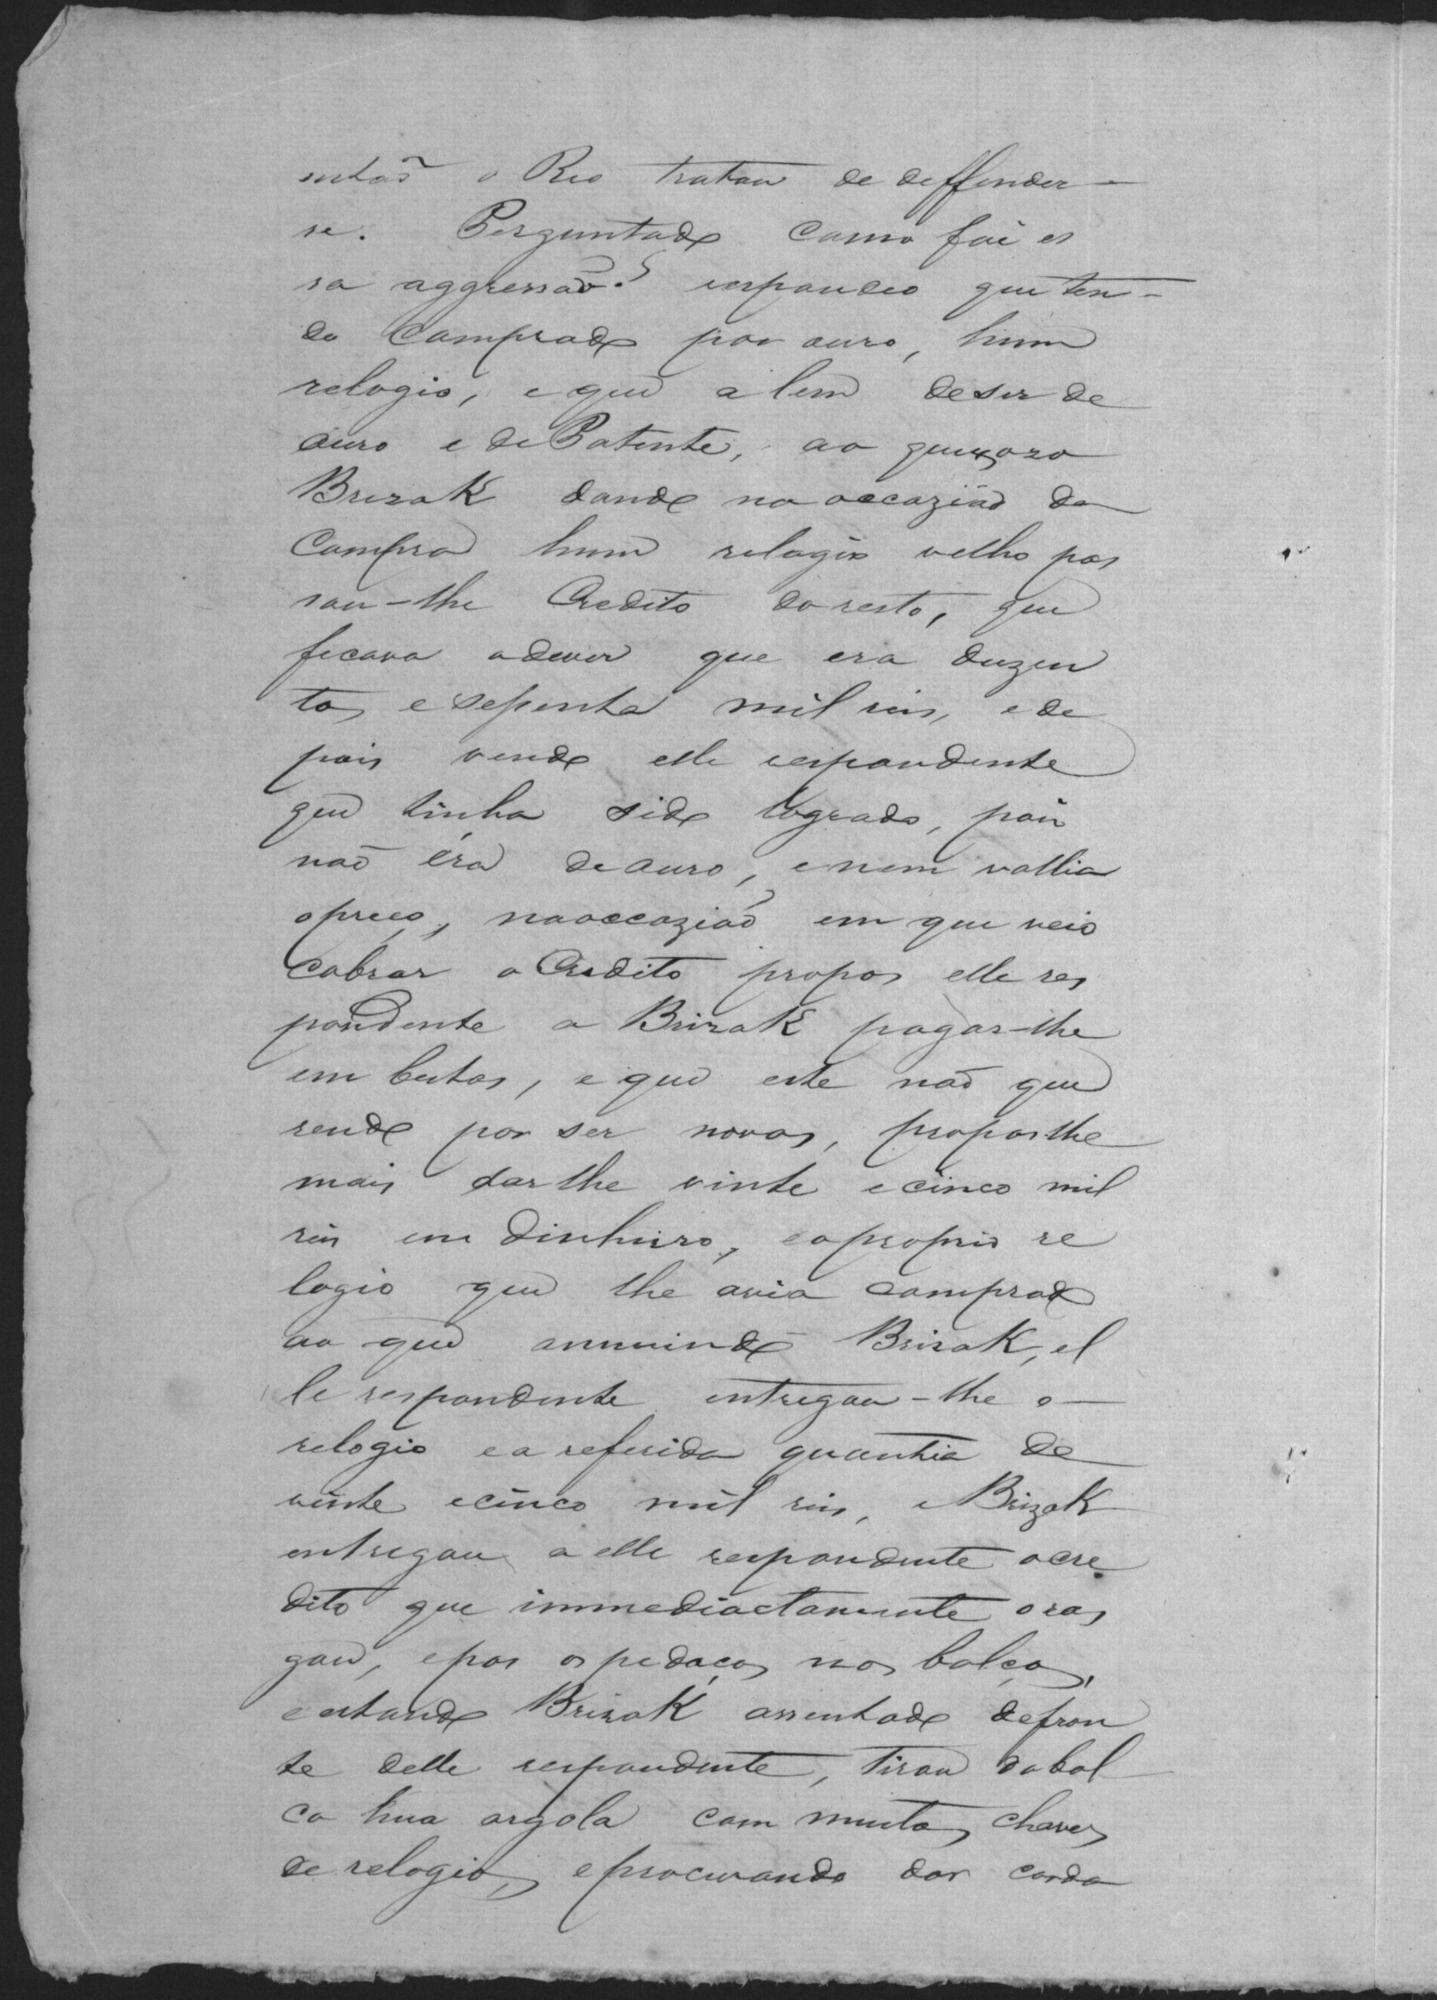 então o Reo tratou de deffender-
se. Perguntado como foi es
sa aggressão? respondeo que ten-
do comprado por ouro, hum
relogio, e que alem de ser de
ouro e de Patente, ao queixozo
Brizak dando na occazião da
Compra hum relogio velho pas
sou-lhe Credito do resto, que
ficava a dever que era duzen
tos e setenta mil reis, e de
pois vendo elle respondente
que tinha sido logrado, pois
não éra de ouro, e nem vallia
o preço, na occazião em que veio
cobrar o Credito propos elle res
pondente a Brizak pagar-lhe
em bestas, e que este não que
rendo por ser novas, propos lhe
mais dar lhe vinte e cinco mil
reis em dinheiro, e o proprio re
logio que lhe avia comprado
ao que annuindo Brizak, el
le respondente entregou-lhe o
relogio e a referida quantia de
vinte e cinco mil reis, e Brizak
entregou a elle respondente o cre
dito que immediactamente o ras
gou, e pos os pedaços nos bolços,
e estando Brizak assentado defron
te delle respondente, tirou do bol
ço hua argola com muitas chaves
de relogio, e procurando dar corda